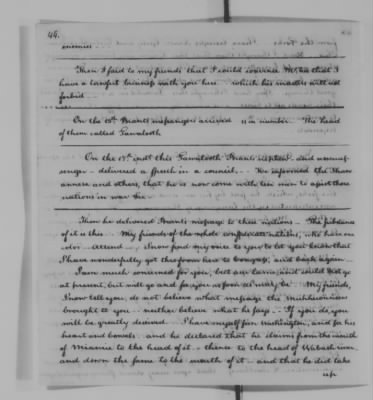 46.
enemies
Then I said to my friends that I could convince Mr. that I
have a lawful business with you here which his masters will not
forbid
On the 15th Brants messengers arrived in number. The head
of them called Tawalooth
On the 17th inst this Tawalooth Brants nephew and
delivered a speech in a council, He informed the Shaw
annese and others, that he is now come with ten men to assist those
nations in war &c
Then he delivered Brants message to these nations. The substance
of it is this My friends of the whole confederate nations, who have one
color attend I now send my voice to you to let you know that
I have wonderfully got thro from here to Congress, and back again
I am much concerned for you, but am lame, and could not go
at present, but will go and see you as soon as may be. My friends,
I now tell you, do not believe what message the Muhheconnuck
brought to you neither believe what he says, If you do, you
will be greatly deceived. I have myself seen Washington, and see his
heart and bowels and he declared that he claims from the mouth
of Miamie to the head of it thence to the head of Wabash river
and down the same to the mouth of it and that he did take
up